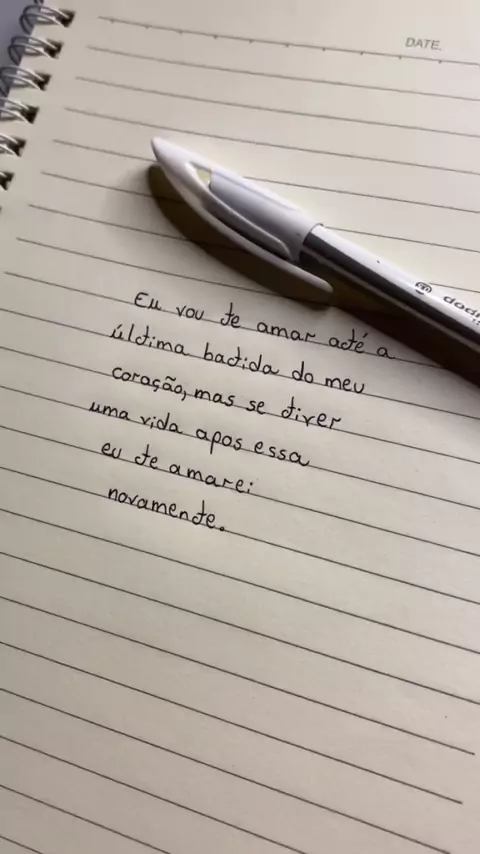 DATE.
Eu vou te amar até a
última batida do meu
coração, mas se tiver
uma vida apos essa
eu te amarei
novamente.